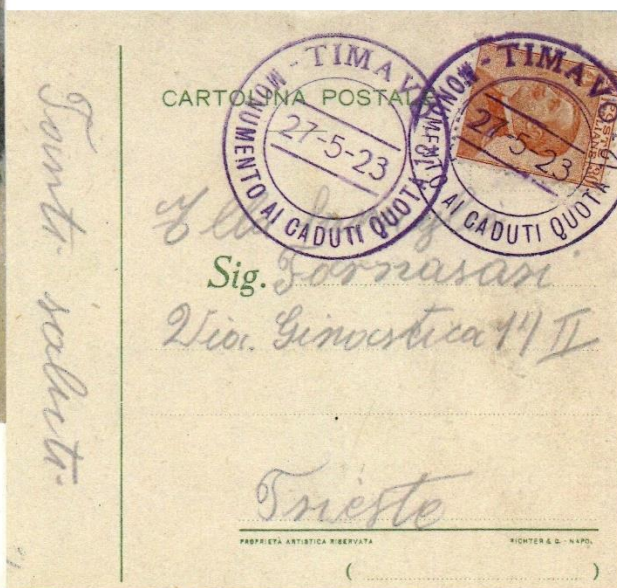 Tanti saluti.
CARTOLINA POSTALE
TIMAVO
27-5-23
MONUMENTO AI CADUTI QUOTA
TIMAVO
27-5-23
MONUMENTO AI CADUTI QUOTA 12
POSTE
Alla
Sig. Fornasari
Via. Ginnastica 14 II
Trieste
PROPRIETÀ ARTISTICA RISERVATA
RICHTER & C. - NAPOLI
( )